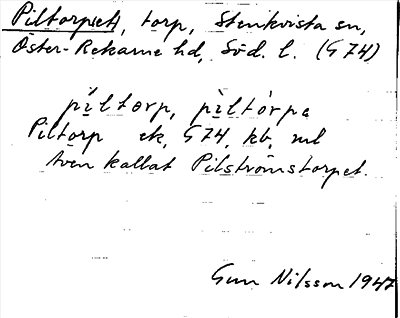 Piltorp(et), torp, Stenkvista sn,
Öster-Rekarne hd, Söd. l. (G 74)
píltorp, pìltórpe
Piltorp ek, G74, kb, ml
Även kallat Pilströmstorpet.
Gun Nilsson 1947